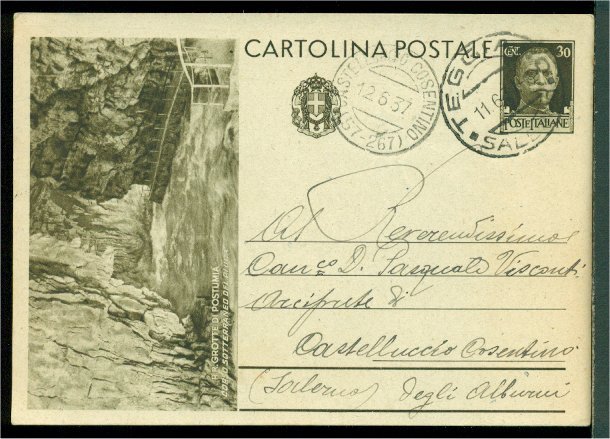 CARTOLINA POSTALE
CENT. 30
POSTE ITALIANE
CASTELLUCCIO COSENTINO
12.6.37
(57-267)
TEGG
11.6
SAL
Al Reverendissimo
Can.co D. Pasquale Visconti
Arciprete di
Castelluccio Cosentino
(Salerno) degli Alburni
R.R. GROTTE DI POSTUMIA
CORSO SOTTERRANEO DEL PIUCA